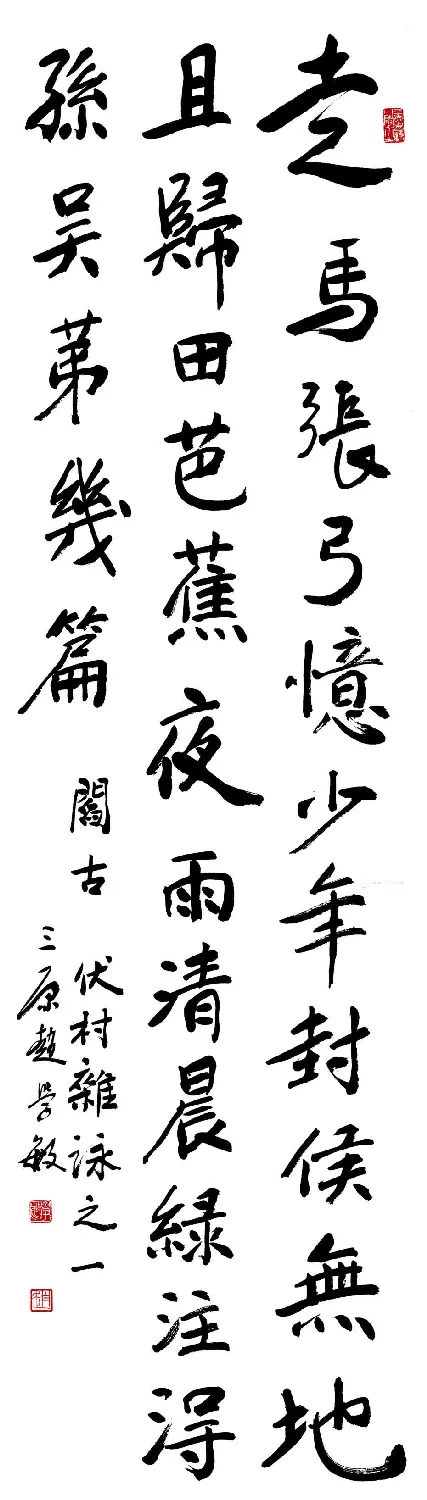 走馬張弓憶少年封侯無地
且歸田芭蕉夜雨清晨綠注淂
孫吴苐幾篇
閻古 伏村雜詠之一
三原趙學敏